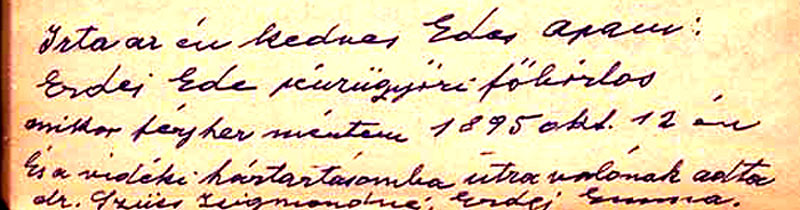 Irta az én kedves Edes apám:
Erdei Ede pénzügyőri főbiztos
mikor férjhez mentem 1895 okt. 12 én
És a vidéki háztartásomba útra valónak adta
dr. Zsigmondné, Erdei Emma.